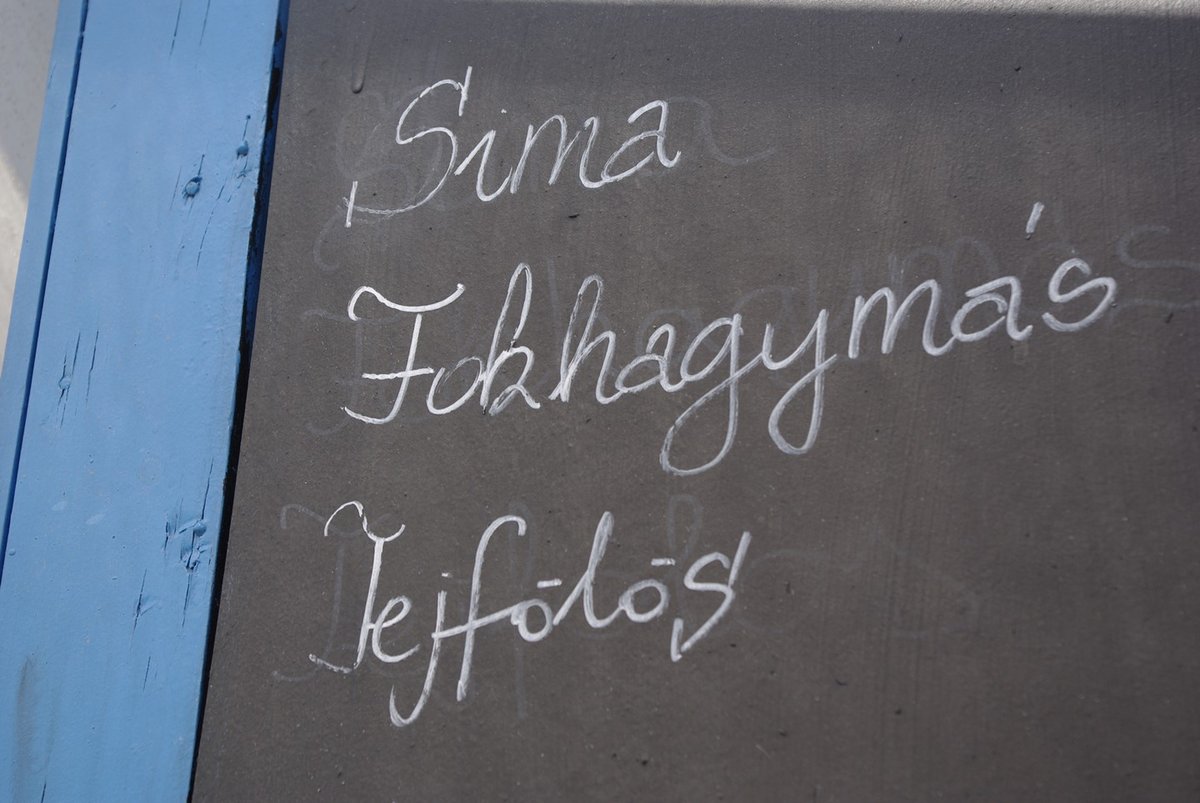 Sima
Fokhagymás
Tejfölös